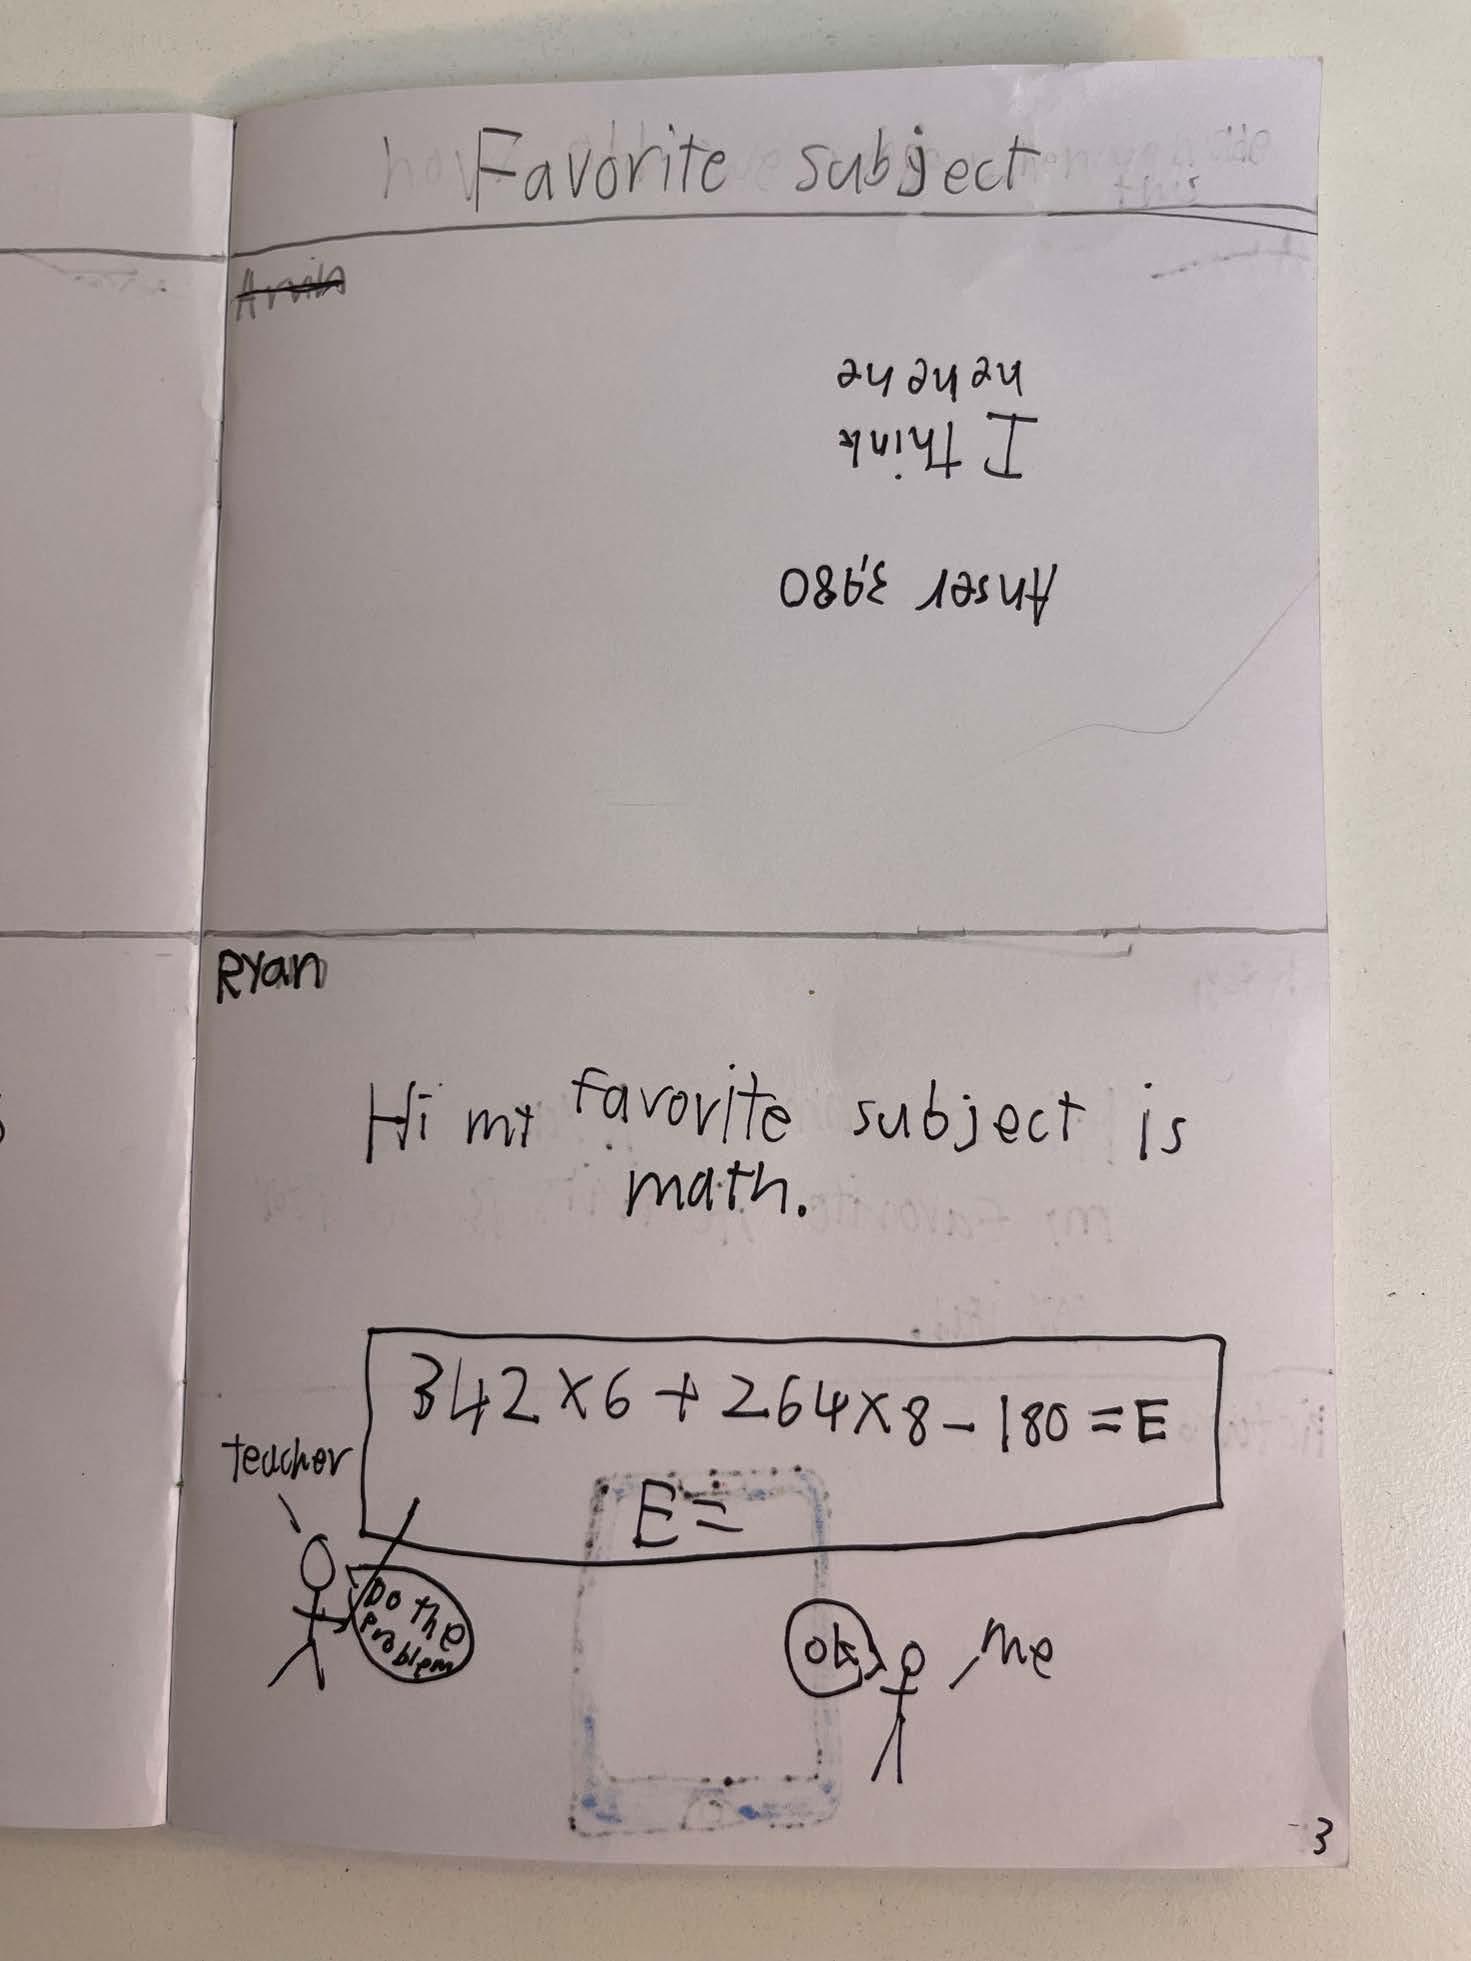 Favorite subject
he he he
I think
Anser 3,980
Ryan
Hi my favorite subject is
math.
342 x 6 + 264 x 8 - 180 = E
E =
teacher
Do the
problem
ok
me
3